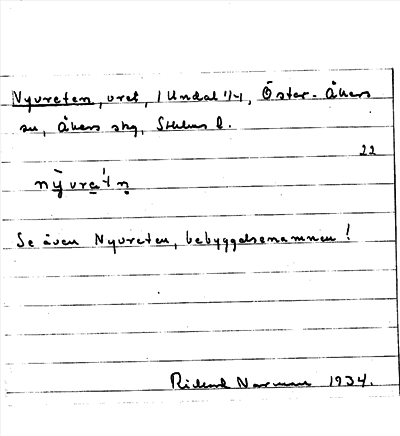 Nyvreten, vret, i Undal 1/4, Öster-Åkers
sn, Åkers skg, Sthlms l.
22
nỳvre̱'tṇ
Se även Nyvreten, bebyggelsenamnen!
Rickard Norrman 1934.